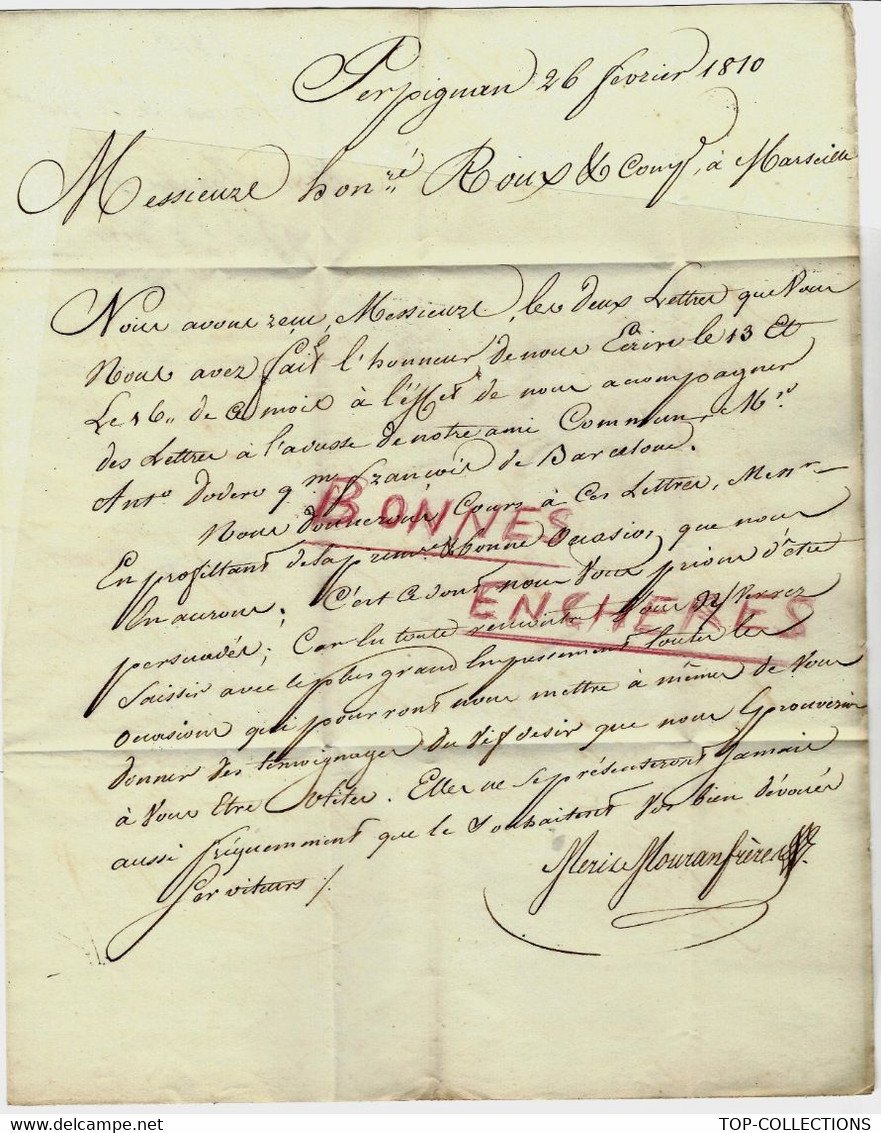 Perpignan 26 fevrier 1810
Messieurs hon.ré Roux & Comp.e, à Marseille
Nous avons reçu, Messieurs, les deux Lettres que Vous
Nous avez fait l'honneur de nous Ecrire le 13 Et
Le 16,, de ce mois à l'éffet de nous acompagner
des Lettres à l'adresse de notre ami Commun, Mr.
Anto. Dodero q.m françois de Barcelone.
Nous donnerons Cours à Ces Lettres, Messrs
En profittant de la premre. & bonne Ocasion que nous
En aurons; C'est Ce dont nous Vous prions d'être
persuadés; Car En toute rencontre Vous Verrez
Saisir avec le plus grand Empressement toutes les
Ocasions qui pourront nous mettre à même de Vous
donner des témoignages du Vif desir que nous Eprouverons
à Vous Etre Utiles. Elles ne Se présenteront Jamais
aussi fréquemment que le Souhaitent Vos bien dévoués
Serviteurs ./.
Mouran frères
BONNES
ENCHERES
TOP-COLLECTIONS